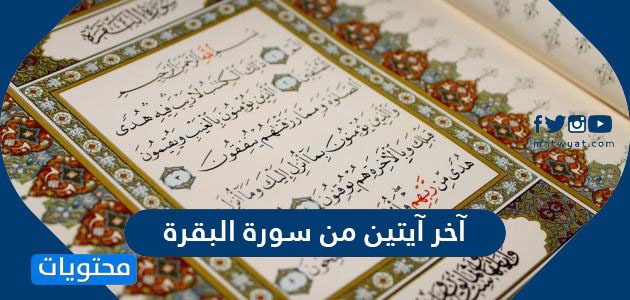 بسم الله الرحمن الرحيم
ذَٰلِكَ الْكِتَٰبُ لَا رَيْبَ فِيهِ هُدًى
الَّذِينَ يُؤْمِنُونَ بِالْغَيْبِ وَيُقِيمُونَ
الصَّلَٰوةَ وَمِمَّا رَزَقْنَٰهُمْ يُنْفِقُونَ
وَالَّذِينَ يُؤْمِنُونَ بِمَا أُنْزِلَ إِلَيْكَ وَمَا أُنْزِلَ
قَبْلِكَ وَبِالْآخِرَةِ هُمْ يُوقِنُونَ
هُدًى مِنْ رَبِّهِمْ
mhtwyat.com
آخر آيتين من سورة البقرة
محتويات